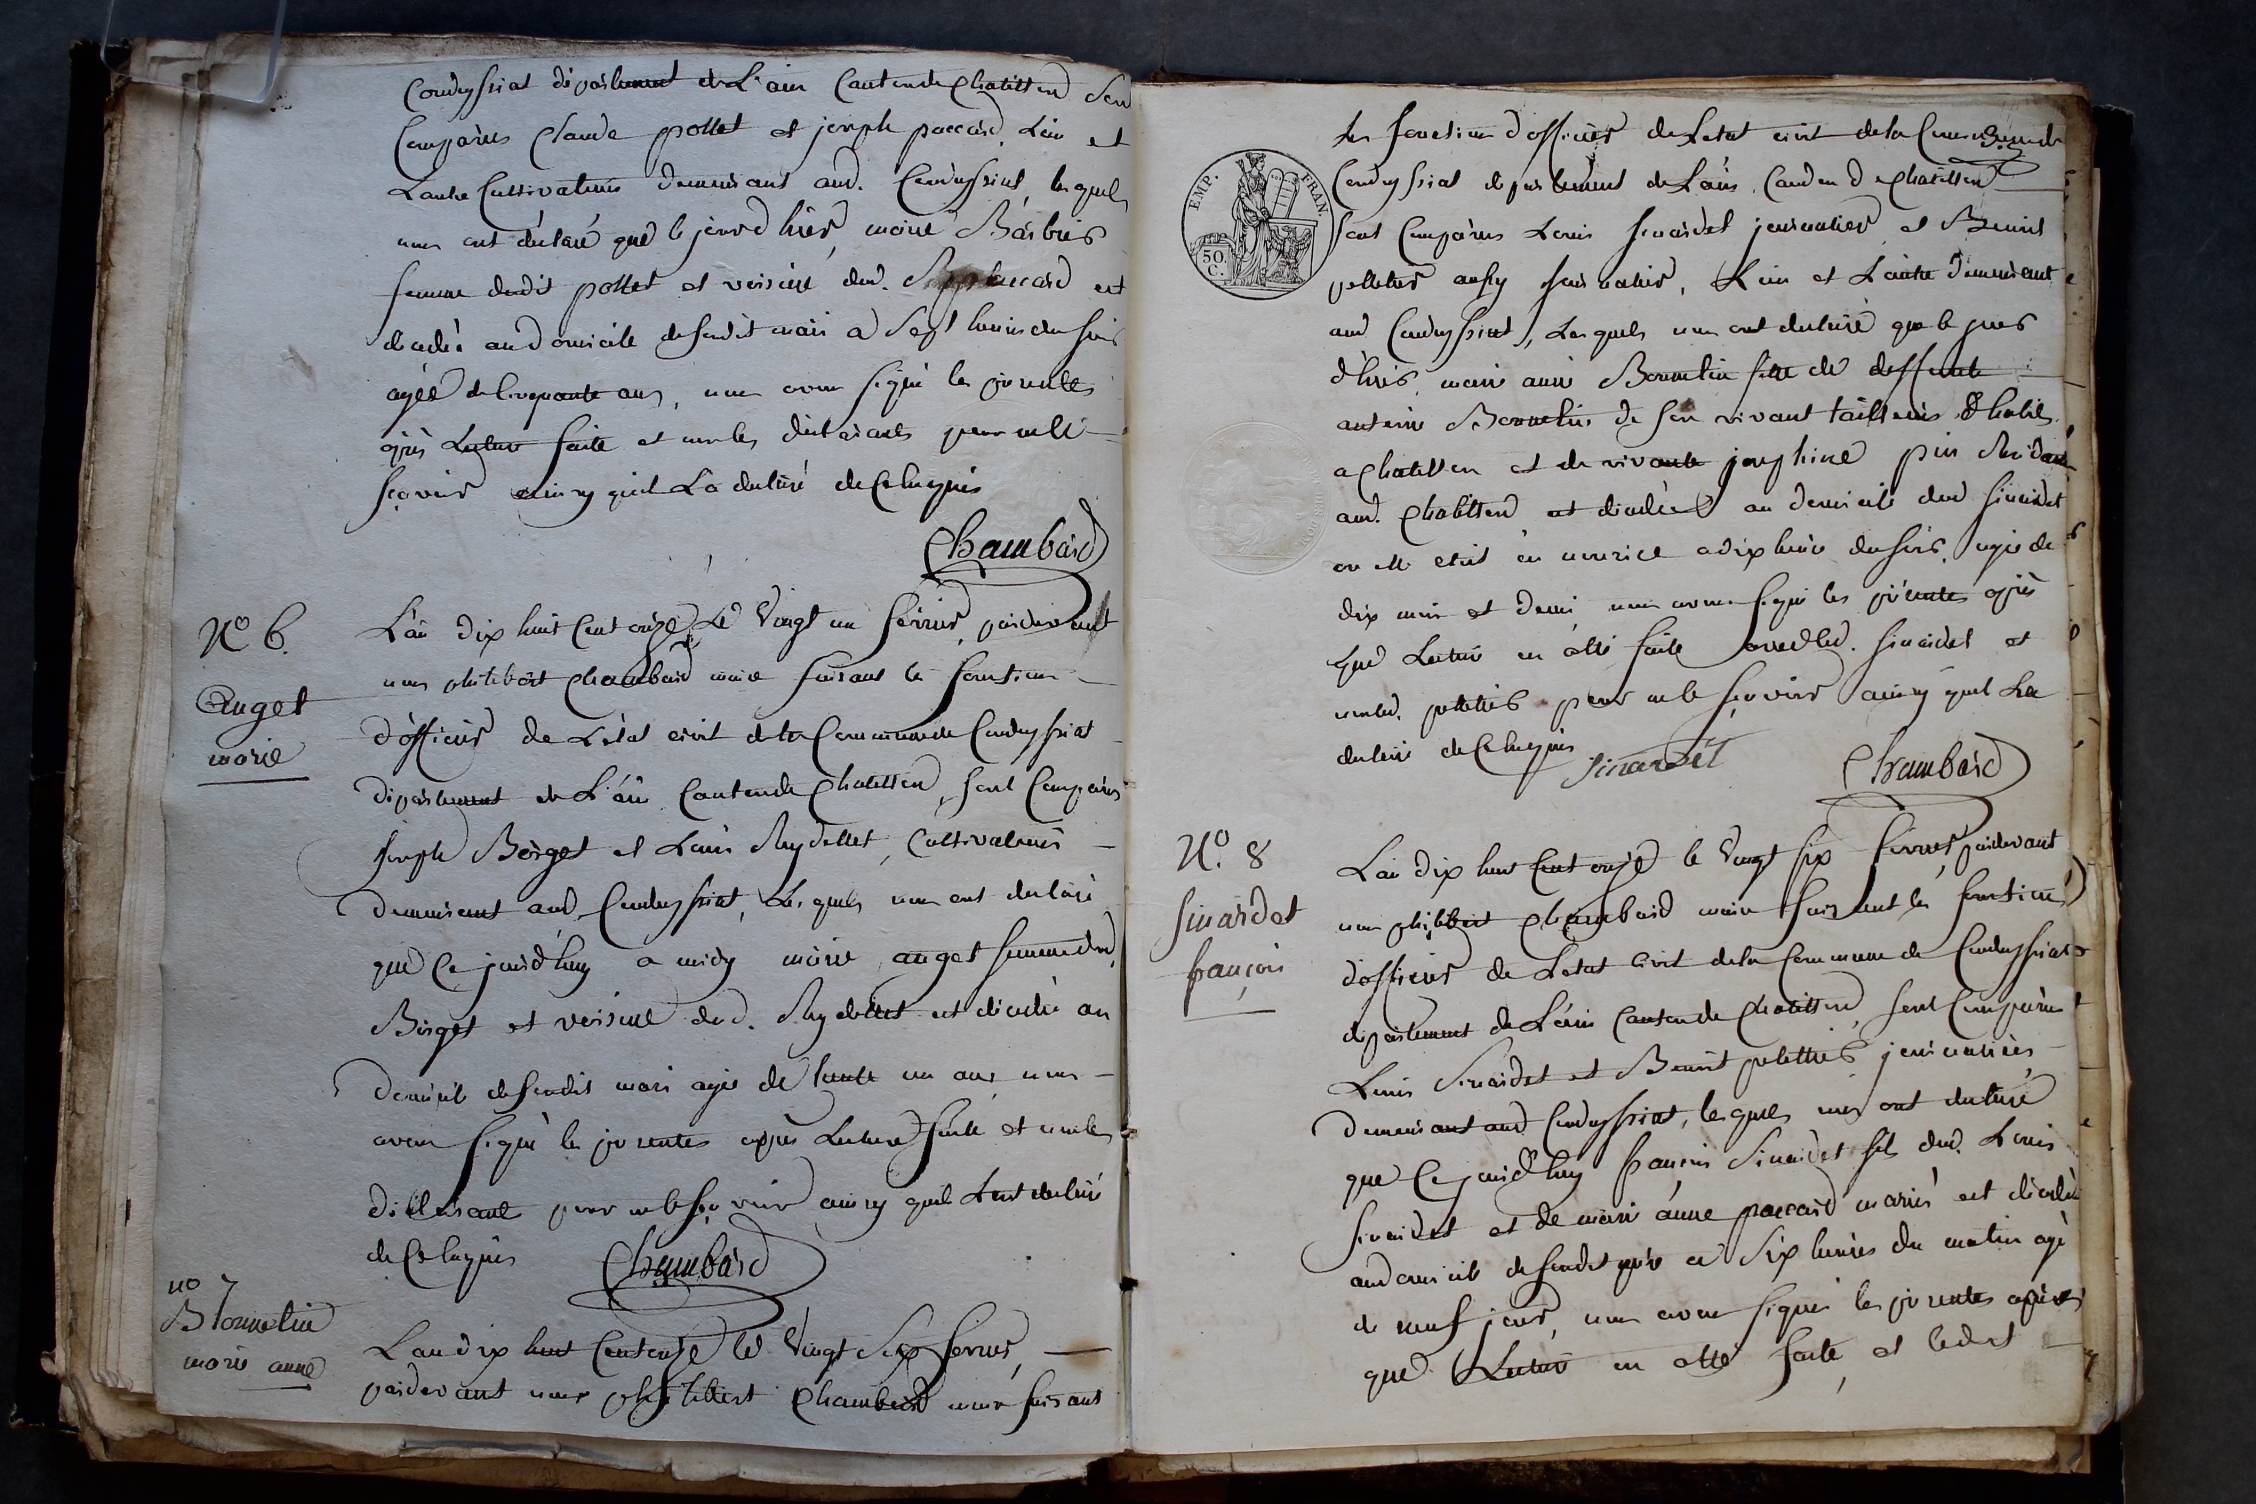 Condeyssiat département de L'ain Canton de Chatillon Sont
Comparus Claude pollet et joseph paccard, L'un et
L'autre Cultivateurs demeurant aud. Condeyssiat, lesquels
nous ont déclaré que le jour d'hier, marie Barbier
femme dudit pollet et voisine dud. paccard est
décedée au domicile de Sondit mari a Sept heures du soir
agée de Cinquante ans, nous avons signé les presentes
après Lecture faite et non les déclarants pour ne le
sçavoir ainsy qu'il La déclaré de Ce Requis
Chambard
N° 6.
Anget
marie
L'an dix huit Cent onze, Le Vingt un fevrier, pardevant
nous philibert Chambard maire faisant les fonctions
d'officier de L'état civil de la Commune de Condeyssiat
département de L'ain Canton de Chatillon, Sont Comparus
joseph Berget et Louis Reydellet, Cultivateurs
demeurant aud. Condeyssiat, Lesquels nous ont déclaré
que Ce jourd'huy a midy marie anget femme dud.
Berget et voisine dud. Reydellet est décedée au
domicile de Sondit mari agée de trente un ans nous
avons signé les presentes après Lecture faite et non les
déclarant pour ne le sçavoir ainsy quil Lont déclaré
de Ce Requis Chambard
n° 7
Bornetin
marie anne
L'an dix huit Cent onze le Vingt Six fevrier,
pardevant nous philibert Chambard maire faisant
les fonctions d'officier de Letat civil de la Commune de
Condeyssiat département de L'ain, Canton de Chatillon
EMP. FRAN.
50. C.
Sont Comparus Louis Sinardet journalier et Benoit
pelletier aussy journalier, L'un et L'autre demeurant
aud Condeyssiat, Lesquels nous ont déclaré que le jour
d'hier, marie anne Bornetin fille de deffunt
antoine Bornetin de son vivant tailleur d'habits
a Chatillon et de vivante josephine pin Residante
aud. Chatillon est décedée au domicile dud Sinardet
ou elle etoit en nourice a dix heures du soir, agée de
dix mois et demi, nous avons signé les presentes après
que Lecture en a été faite avec led. Sinardet et
non led. pelletier pour ne le sçavoir ainsy quil La
déclaré de Ce Requis Sinardet Chambard
N°. 8
Sinardet
françois
L'an dix huit Cent onze le Vingt Six fevrier pardevant
nous philibert Chambard maire faisant les fonctions
d'officier de Letat Civil de la Commune de Condeyssiat
département de L'ain Canton de Chatillon, Sont Comparus
Louis Sinardet et Benoit pelletier journaliers
demeurant aud Condeyssiat, lesquels nous ont déclaré
que Ce jourd'huy françois Sinardet fils dud. Louis
Sinardet et de marie anne paccard mariés est décedé
au domicile de Sondit père a Six heures du matin agé
de neuf jours, nous avons signé les presentes après
que Lecture en a été faite, et ledit